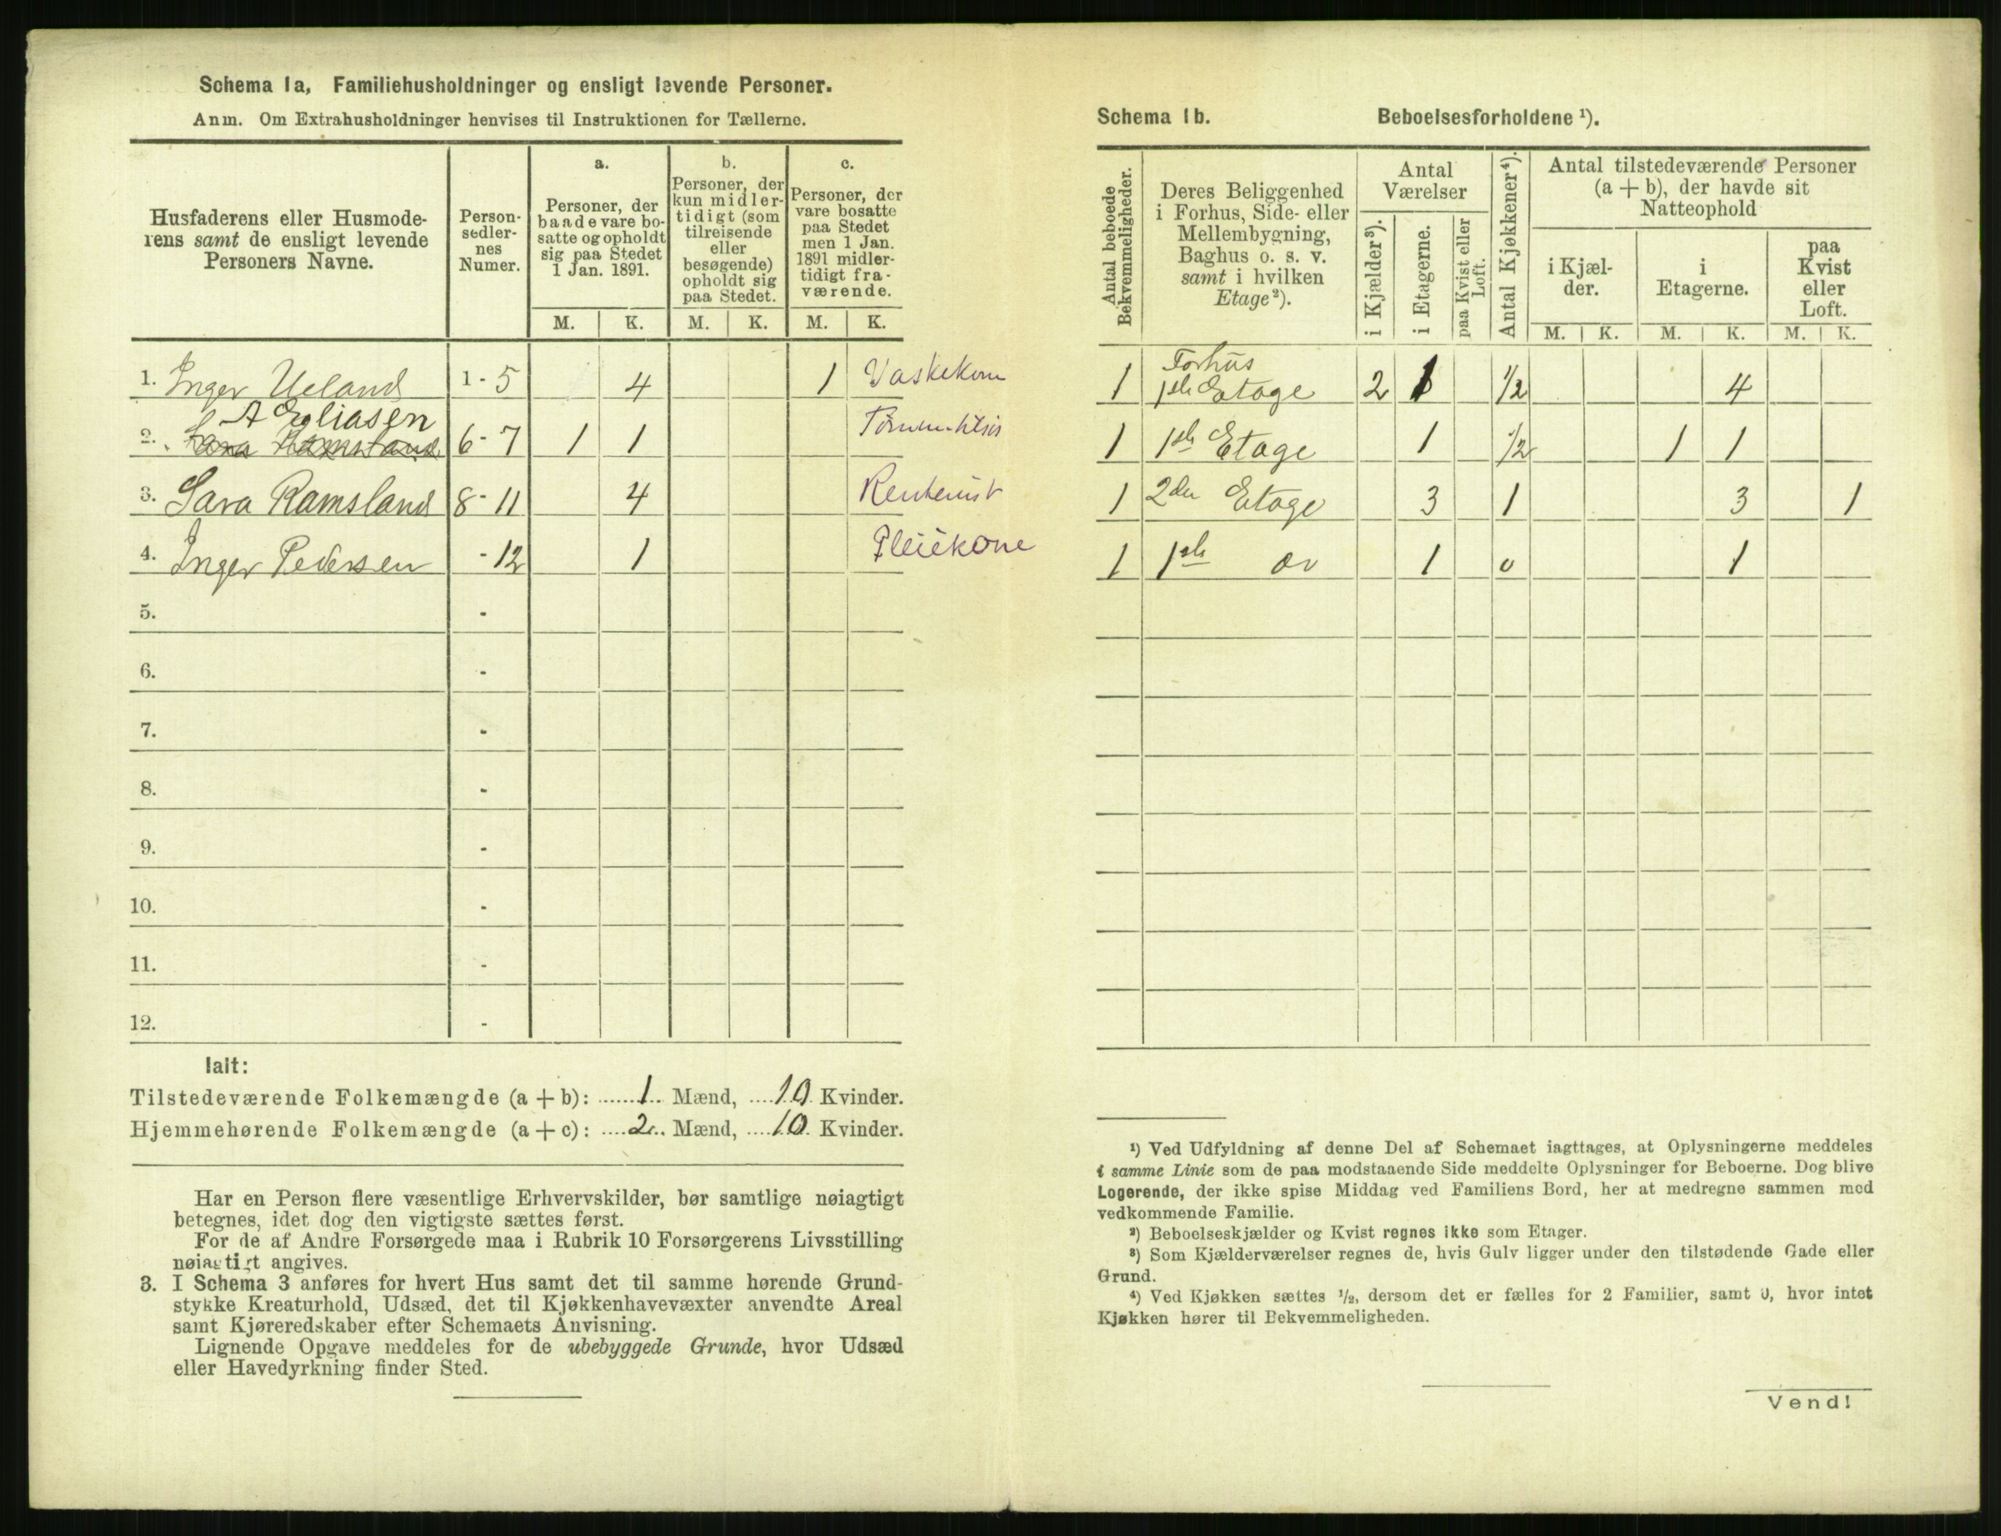 Schema 1a, Familiehusholdninger og ensligt levende Personer.
Anm. Om Extrahusholdninger henvises til Instruktionen for Tællerne.
Husfaderens eller Husmode-
rens samt de ensligt levende
Personers Navne.
Person-
sedler-
nes
Numer.
a.
Personer, der
baade vare bo-
satte og opholdt
sig paa Stedet
1 Jan. 1891.
b.
Personer, der
kun midler-
tidigt (som
tilreisende
eller
besøgende)
opholdt sig
paa Stedet.
c.
Personer, der
vare bosatte
paa Stedet
men 1 Jan.
1891 midler-
tidigt fra-
værende.
M. K. M. K. M. K.
1. Inger Ueland 1 - 5 4 1 Vaskekone
A Egliasen
2. Sara Ramsland 6 - 7 1 1
3. Sara Ramsland 8 - 11 4 Rentenist
4. Inger Pedersen - 12 1 Pleiekone
5. -
6. -
7. -
8. -
9. -
10. -
11. -
12. -
Ialt:
Tilstedeværende Folkemængde (a + b): 1 Mænd, 10 Kvinder.
Hjemmehørende Folkemængde (a + c): 2 Mænd, 10 Kvinder.
Har en Person flere væsentlige Erhvervskilder, bør samtlige nøiagtigt
betegnes, idet dog den vigtigste sættes først.
For de af Andre Forsørgede maa i Rubrik 10 Forsørgerens Livsstilling
nøiagtigt angives.
3. I Schema 3 anføres for hvert Hus samt det til samme hørende Grund-
stykke Kreaturhold, Udsæd, det til Kjøkkenhavevæxter anvendte Areal
samt Kjøreredskaber efter Schemaets Anvisning.
Lignende Opgave meddeles for de ubebyggede Grunde, hvor Udsæd
eller Havedyrkning finder Sted.
Schema 1b. Beboelsesforholdene ¹).
Antal beboede
Bekvemmeligheder.
Deres Beliggenhed
i Forhus, Side- eller
Mellembygning,
Baghus o. s. v.
samt i hvilken
Etage ²).
Antal
Værelser
i Kjælder ³).
i Etagerne.
paa Kvist eller
Loft.
Antal Kjøkkener ⁴).
Antal tilstedeværende Personer
(a + b), der havde sit
Natteophold
i Kjæl-
der.
i
Etagerne.
paa
Kvist
eller
Loft.
M. K. M. K. M. K.
Forhus
1 1ste Etage 2 1 1/2 4
1 1ste Etage 1 1/2 1 1
1 2den Etage 3 1 3 1
1 1ste 1 0 1
¹) Ved Udfyldning af denne Del af Schemaet iagttages, at Oplysningerne meddeles
i samme Linie som de paa modstaaende Side meddelte Oplysninger for Beboerne. Dog blive
Logerende, der ikke spise Middag ved Familiens Bord, her at medregne sammen med
vedkommende Familie.
²) Beboelseskjælder og Kvist regnes ikke som Etager.
³) Som Kjælderværelser regnes de, hvis Gulv ligger under den tilstødende Gade eller
Grund.
⁴) Ved Kjøkken sættes ½, dersom det er fælles for 2 Familier, samt 0, hvor intet
Kjøkken hører til Bekvemmeligheden.
Vend!